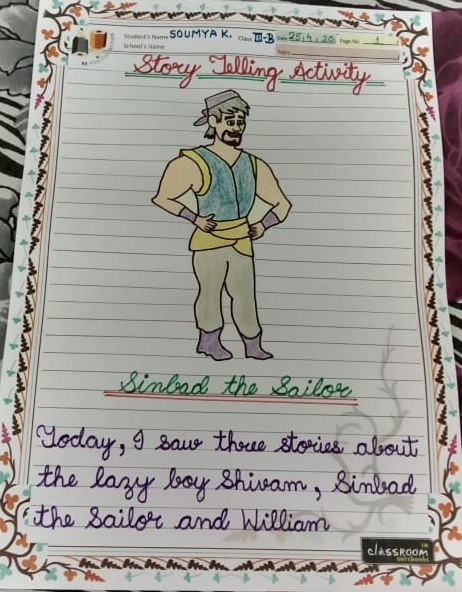 Student's Name SOUMYA K. Class III-B Date 25.4.20 Page No. 1
School's Name
Story Telling Activity
Sinbad the Sailor
Today, I saw three stories about
the lazy boy Shivam, Sinbad
the Sailor and William
classROOM
notebooks